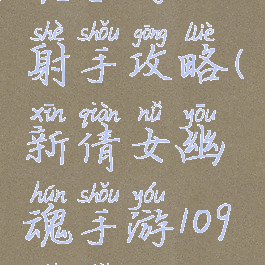 shè shǒu gōng lüè
射手攻略(
xīn qiàn nǚ yōu
新倩女幽
hún shǒu yóu
魂手游109